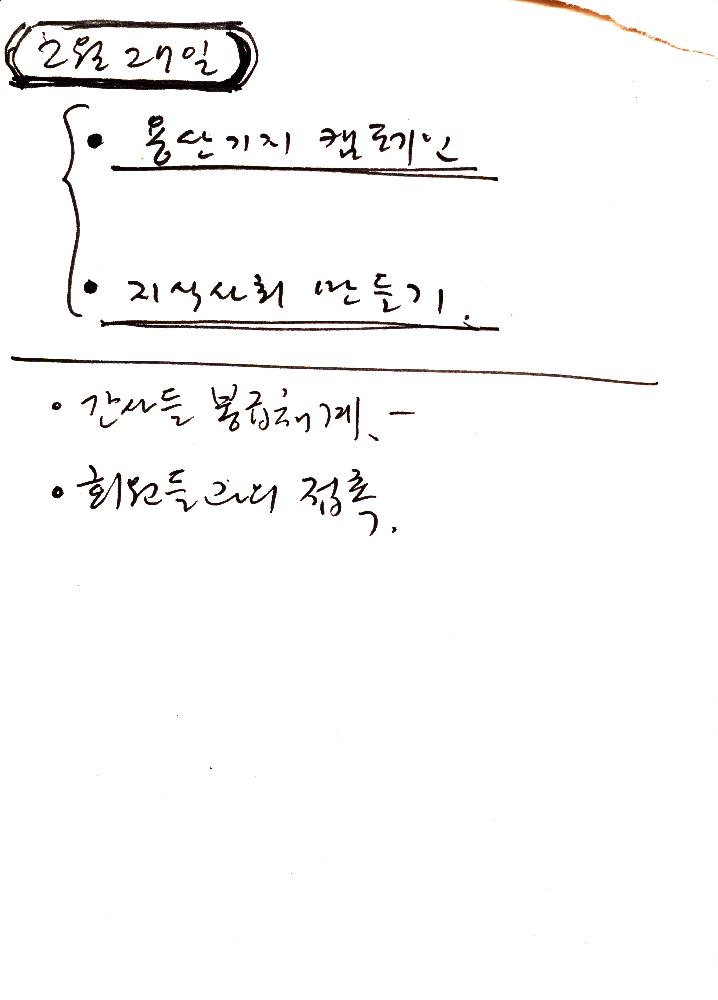 2월 27일
• 용산기지 캠페인
• 지식사회 만들기.
• 간사들 봉급체계. -
• 회원들과의 접촉.